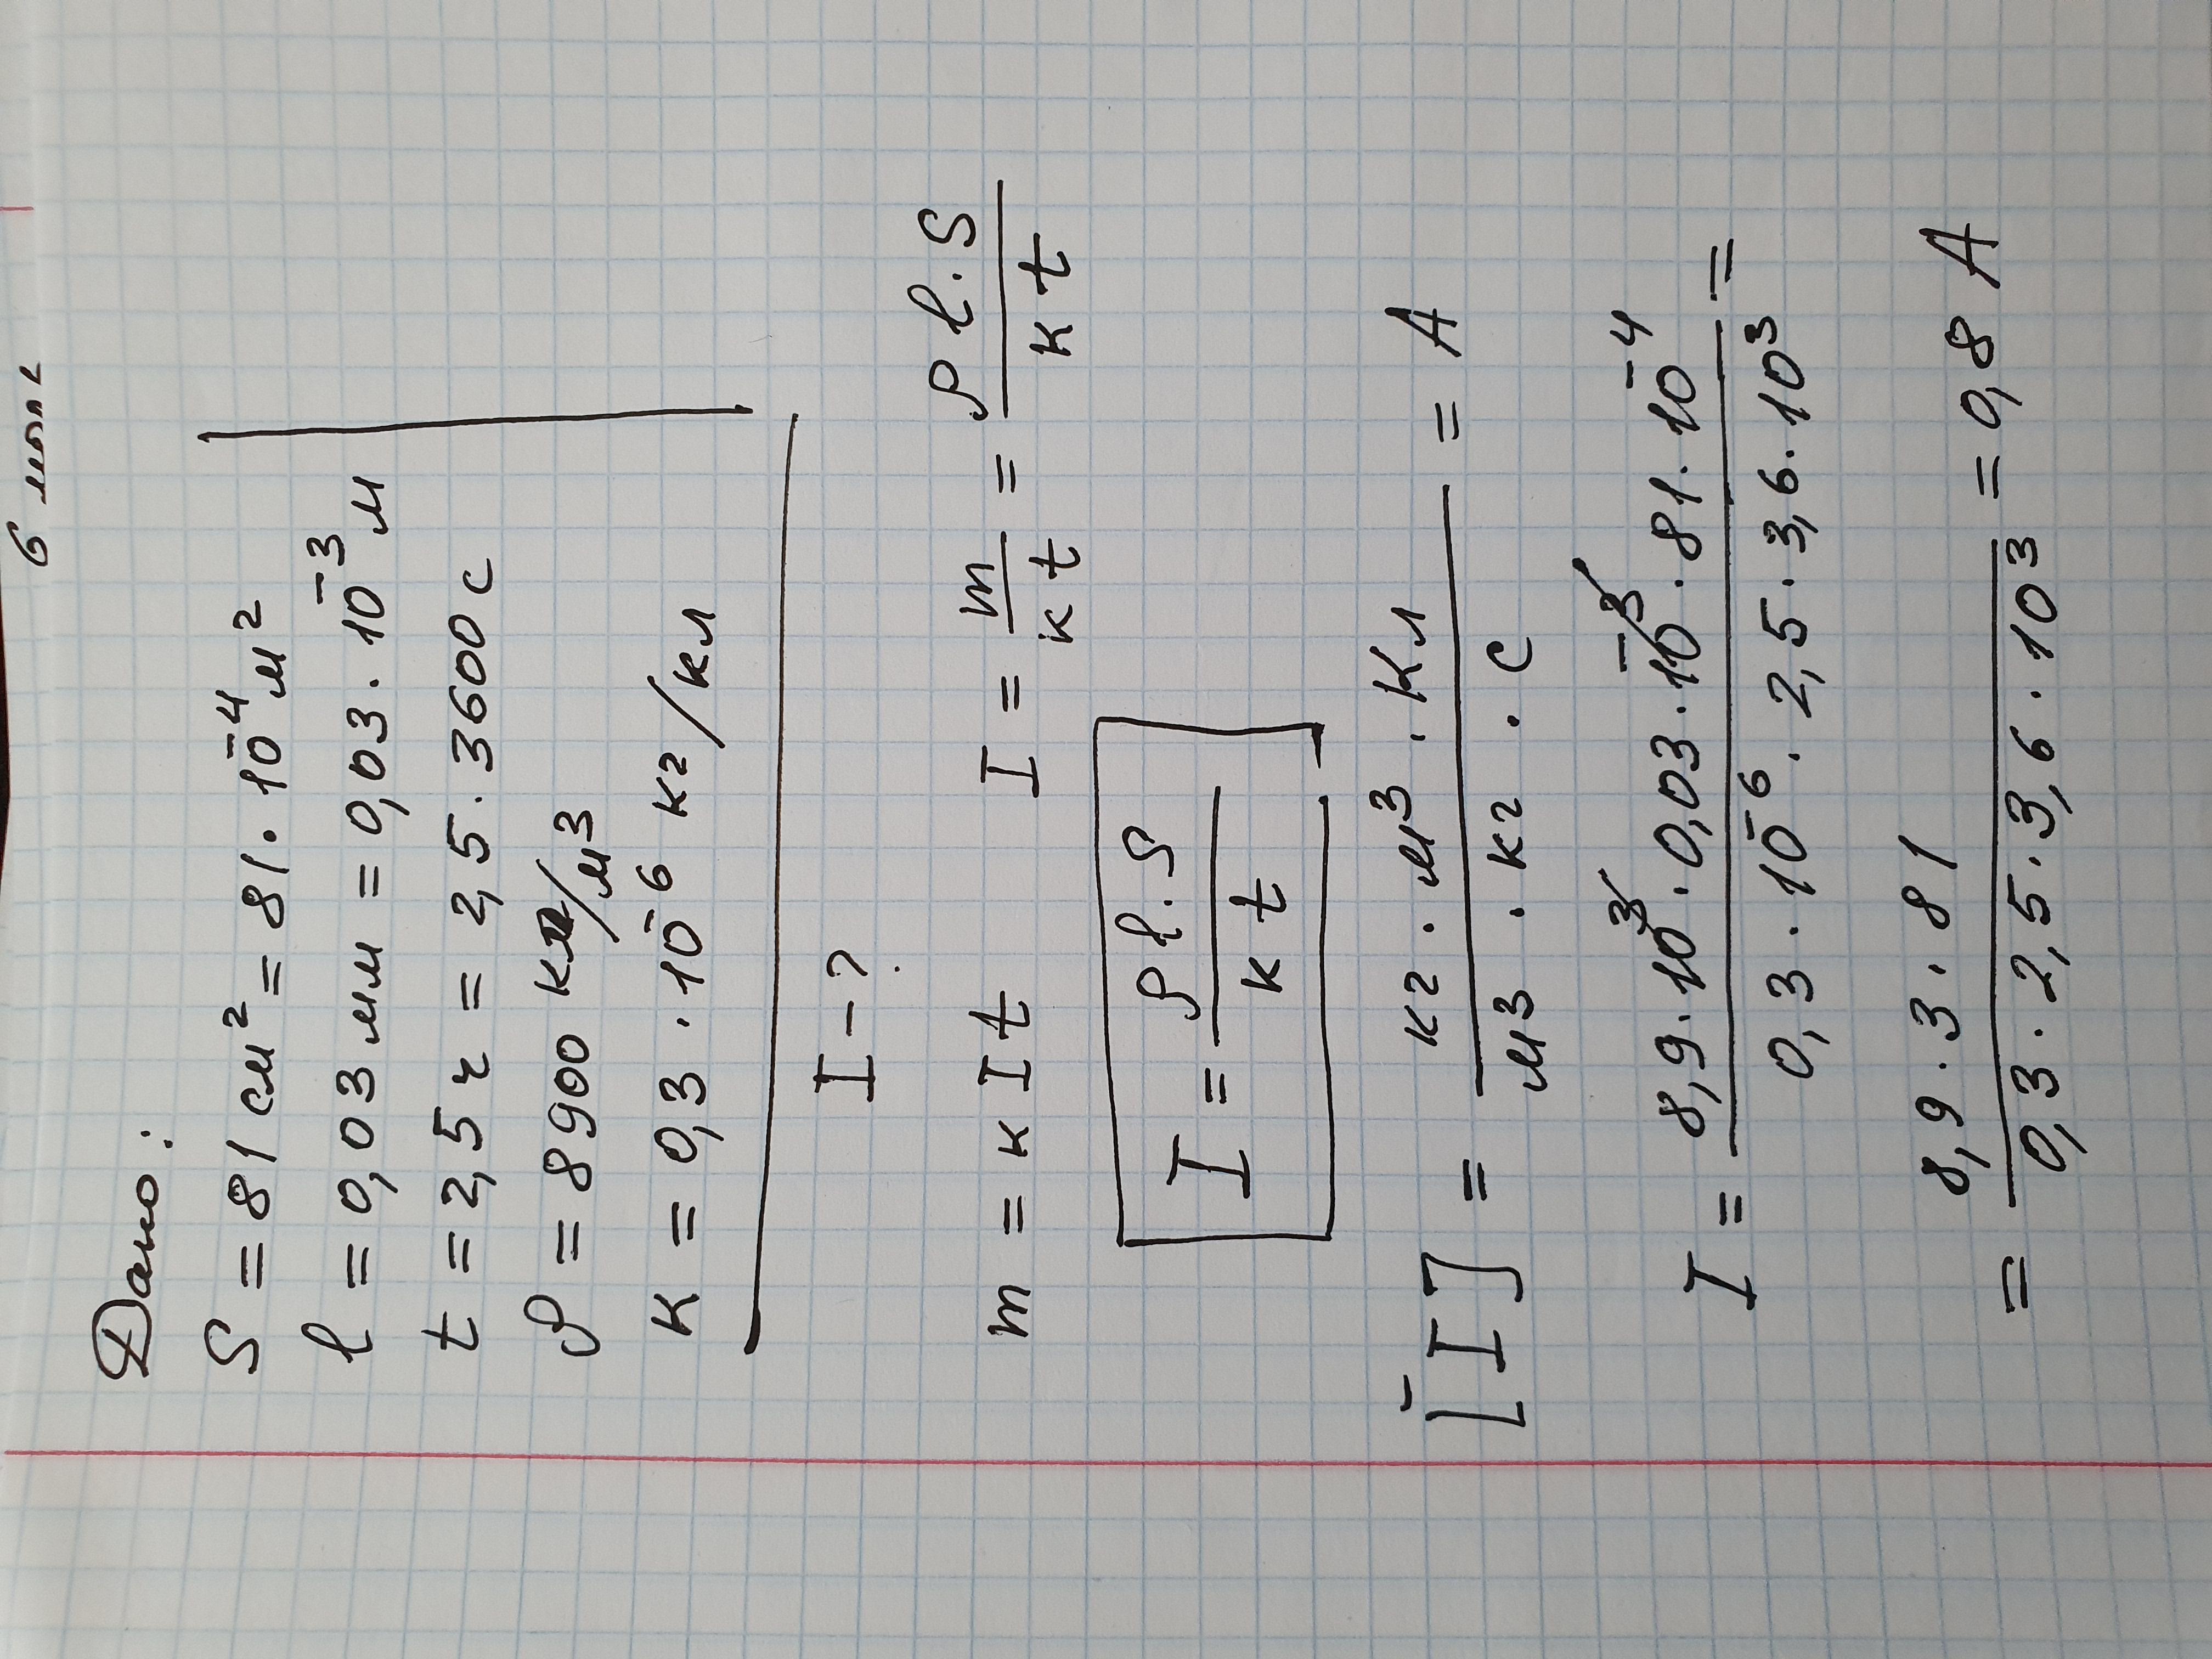 Дано:
S = 81 см² = 81 · 10⁻⁴ м²
l = 0,03 мм = 0,03 · 10⁻³ м
t = 2,5 ч = 2,5 · 3600 с
ρ = 8900 кг/м³
к = 0,3 · 10⁻⁶ кг/кл
I – ?
m = к I t I = m / к t = ρ l · S / к t
I = ρ l · S / к t
[I] = кг · м³ · Кл / м³ · кг · с = А
I = 8,9 · 10³ · 0,03 · 10⁻³ · 81 · 10⁻⁴ / 0,3 · 10⁻⁶ · 2,5 · 3,6 · 10³ =
= 8,9 · 3 · 81 / 0,3 · 2,5 · 3,6 · 10³ = 0,8 А